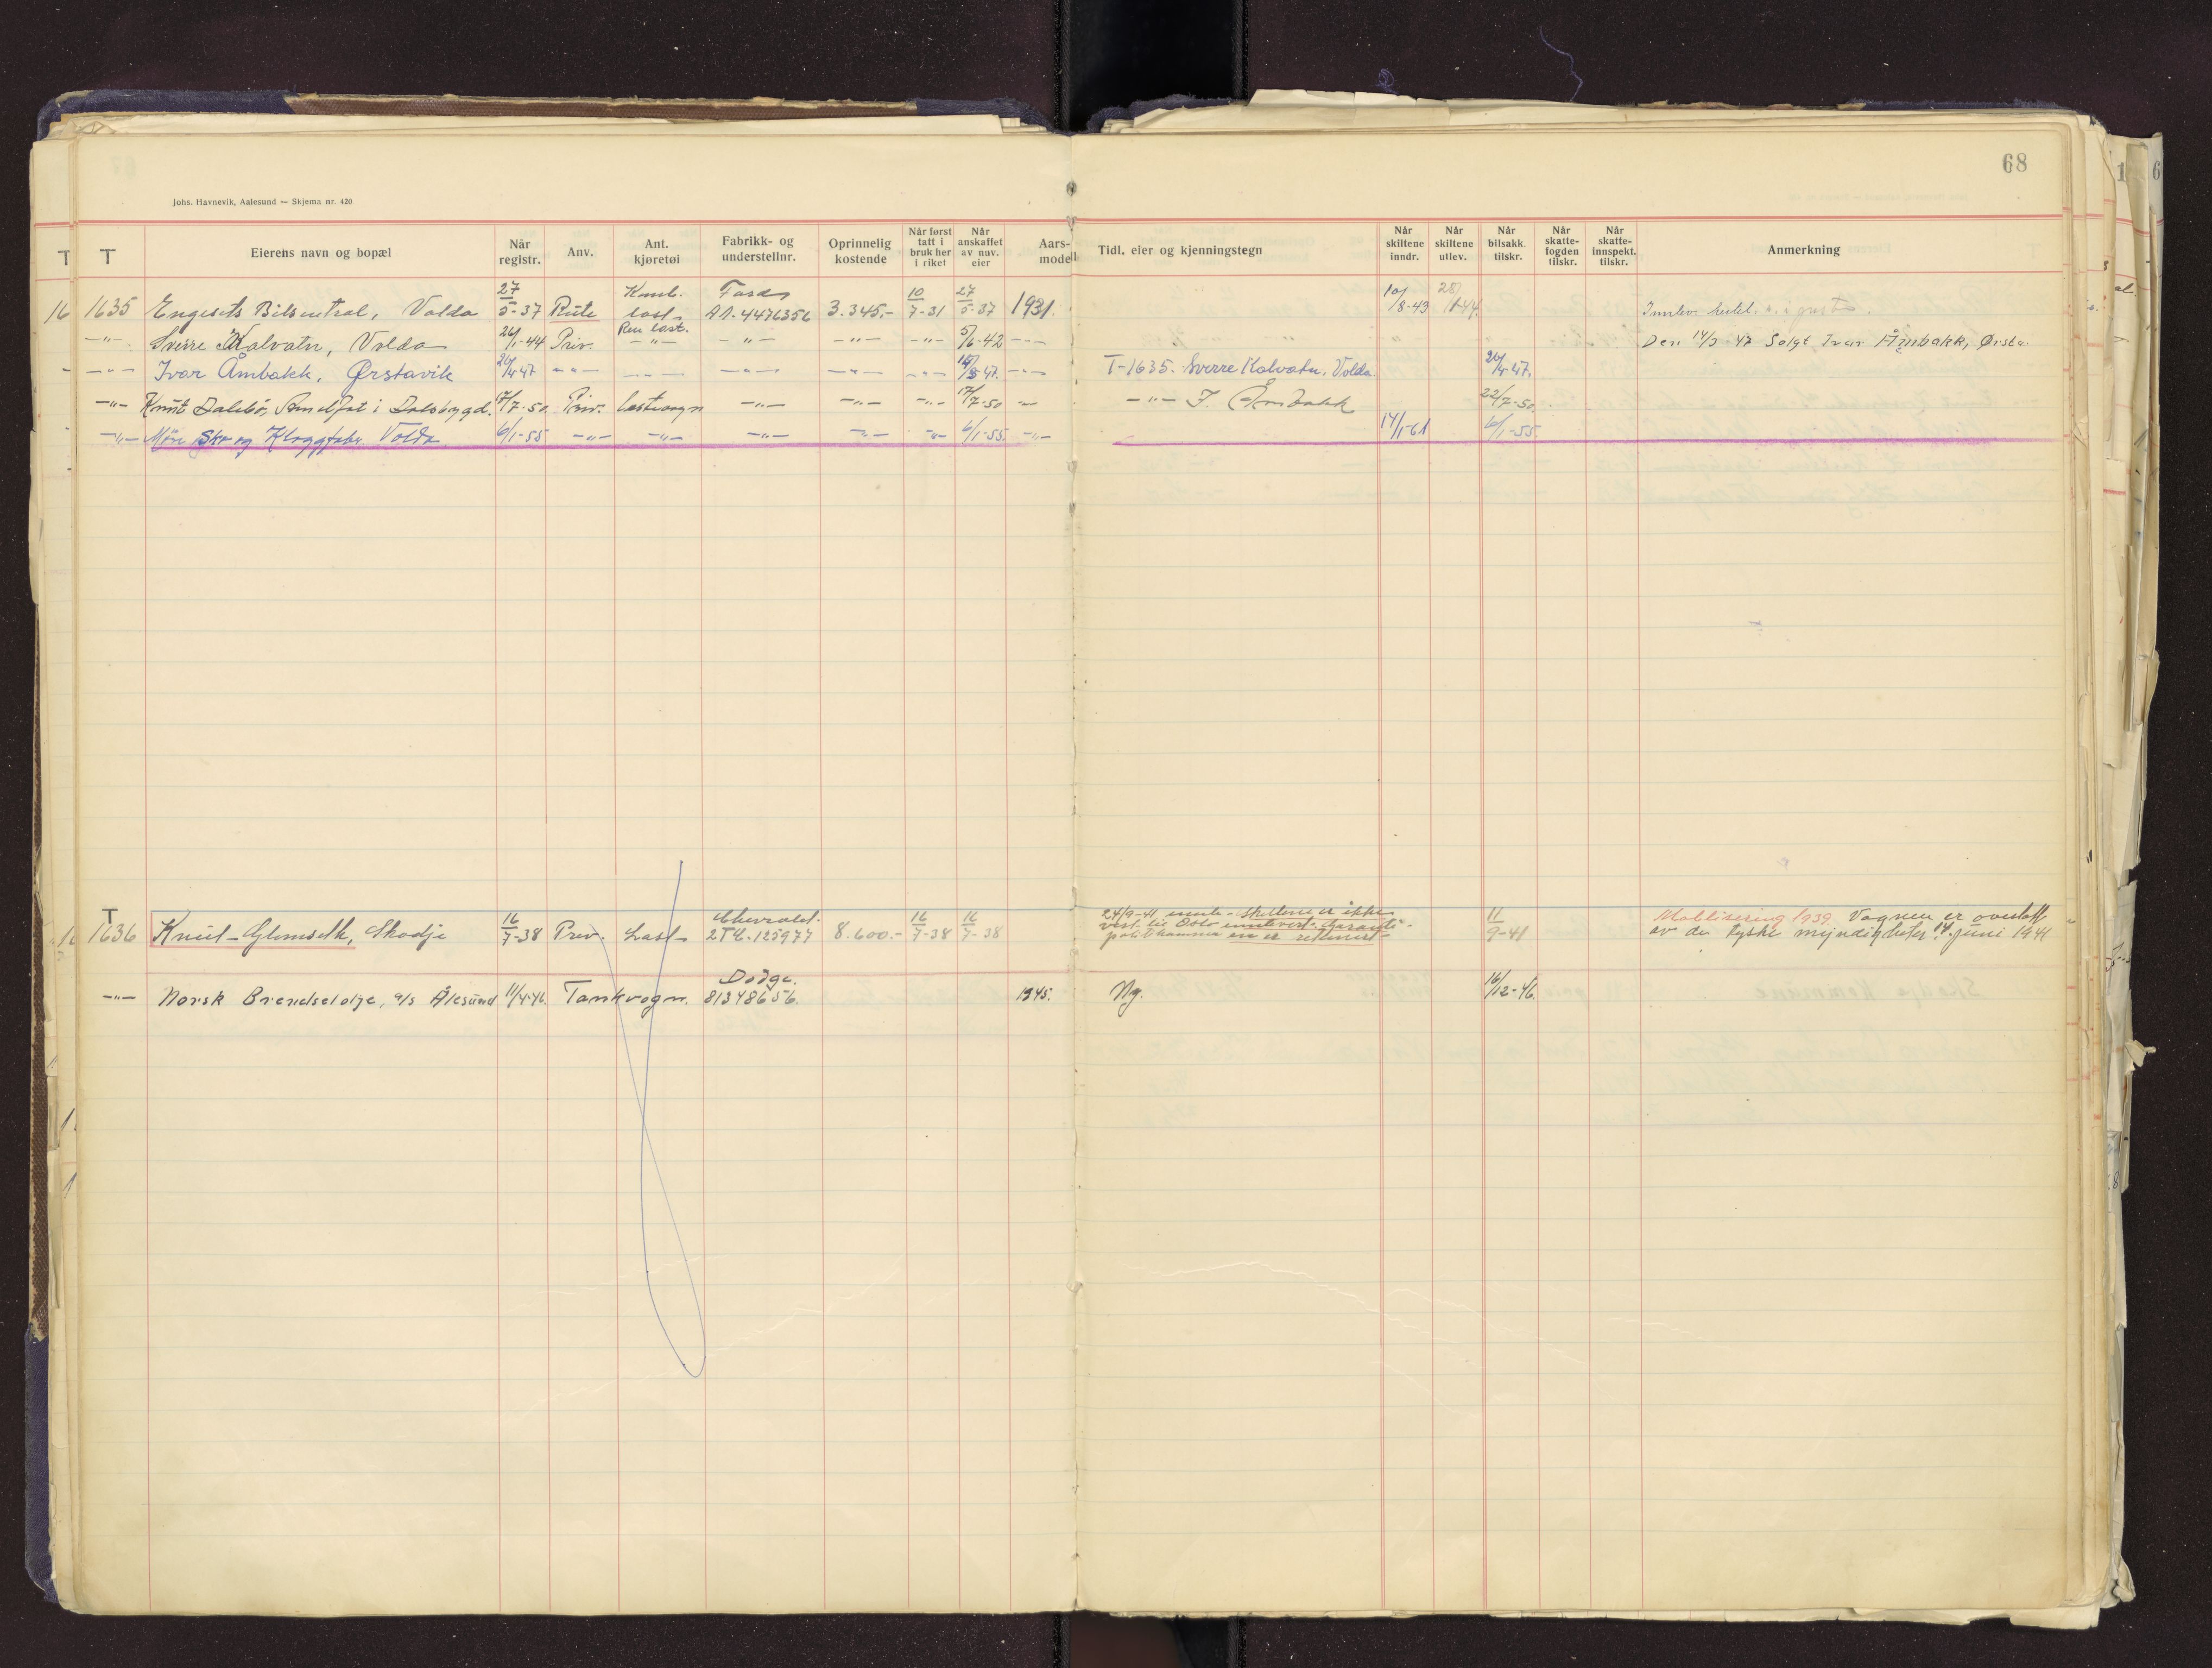 68
Johs. Havnevik, Aalesund — Skjema nr. 420
T T Eierens navn og bopæl Når registr. Anv. Ant. kjøretøi Fabrikk- og understellnr. Oprinnelig kostende Når først tatt i bruk her i riket Når anskaffet av nuv. eier Aars-modell Tidl. eier og kjenningstegn Når skiltene inndr. Når skiltene utlev. Når bilsakk. tilskr. Når skatte-fogden tilskr. Når skatte-innspekt. tilskr. Anmerkning
16 1635 Engesets Bilsentral, Volda 27/5-37 Rute Komb. last. Ford AA. 4476356 3.345.- 10/7-31 27/5-37 1931. 10/8-43 28/1-44. Innlev.
-"- Sverre Kalvatn, Volda 26/1-44 Priv. Ren last. -"- -"- -"- -"- 5/6-42 -"- Den 14/3-47 Solgt Ivar Åmbakk, Ørsta
-"- Ivar Åmbakk, Ørstavik 26/4-47 -"- -"- -"- -"- -"- 47. -"- T-1635. Sverre Kalvatn, Volda. 26/4-47.
-"- Knut Dalsbø, i Dalsbygd. 17/7-50. Priv. lastvogn -"- -"- -"- 17/7-50 -"- -"- I. Åmbakk 22/7-50.
-"- Møre Sko og Kloggfabr. Volda. 6/1-55 -"- -"- -"- -"- -"- 6/1-55. -"- 14/1-61 6/1-55
T 1636 Knut Glomseth, Skodje 16/7-38 Priv. Last Chevrolet. 2TC.125977 8.600.- 16/7-38 16/7-38 11/9-41
24/9-41 skiltene er ikke
til Oslo
er
Mobilisering 1939. Vognen er overtatt
av de tyske myndigheter 14. juni 1941
-"- Norsk Brendselolje, a/s Ålesund 11/4-46. Tankvogn. Dodge. 81348656. 1945. Ny. 16/12-46.